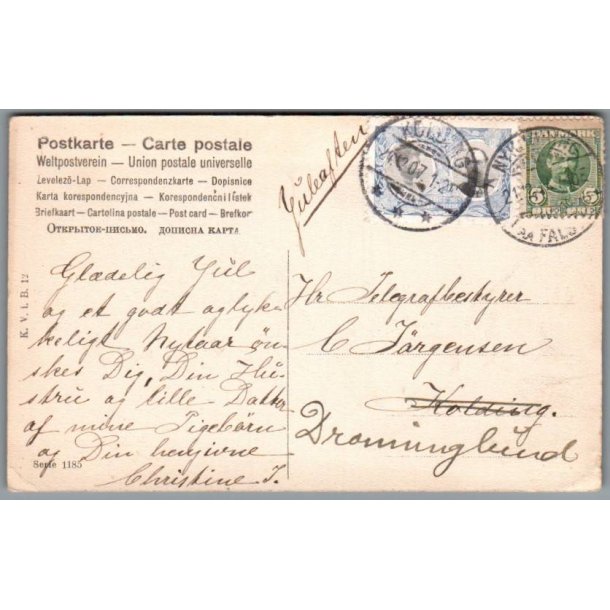 Postkarte — Carte postale
Weltpostverein — Union postale universelle
Levelező-Lap — Correspondenzkarte — Dopisnice
Karta korespondencyjna — Korespondenční lístek
Briefkaart — Cartolina postale — Post card — Brefkort
Открытое-письмо. дописна карта.
Juleaften
KOLDING
07
DANMARK
5
5
FALS
K. V. i. B. 12
Glædelig Jul
og et godt og lykke
keligt Nytaar øn
skes Dig, Din Hu
stru og lille Datter
af mine Pigebørn
og Din hengivne
Christine J.
Serie 1185
Hr Telegrafbestyrer
C Jørgensen
Kolding.
Dronninglund